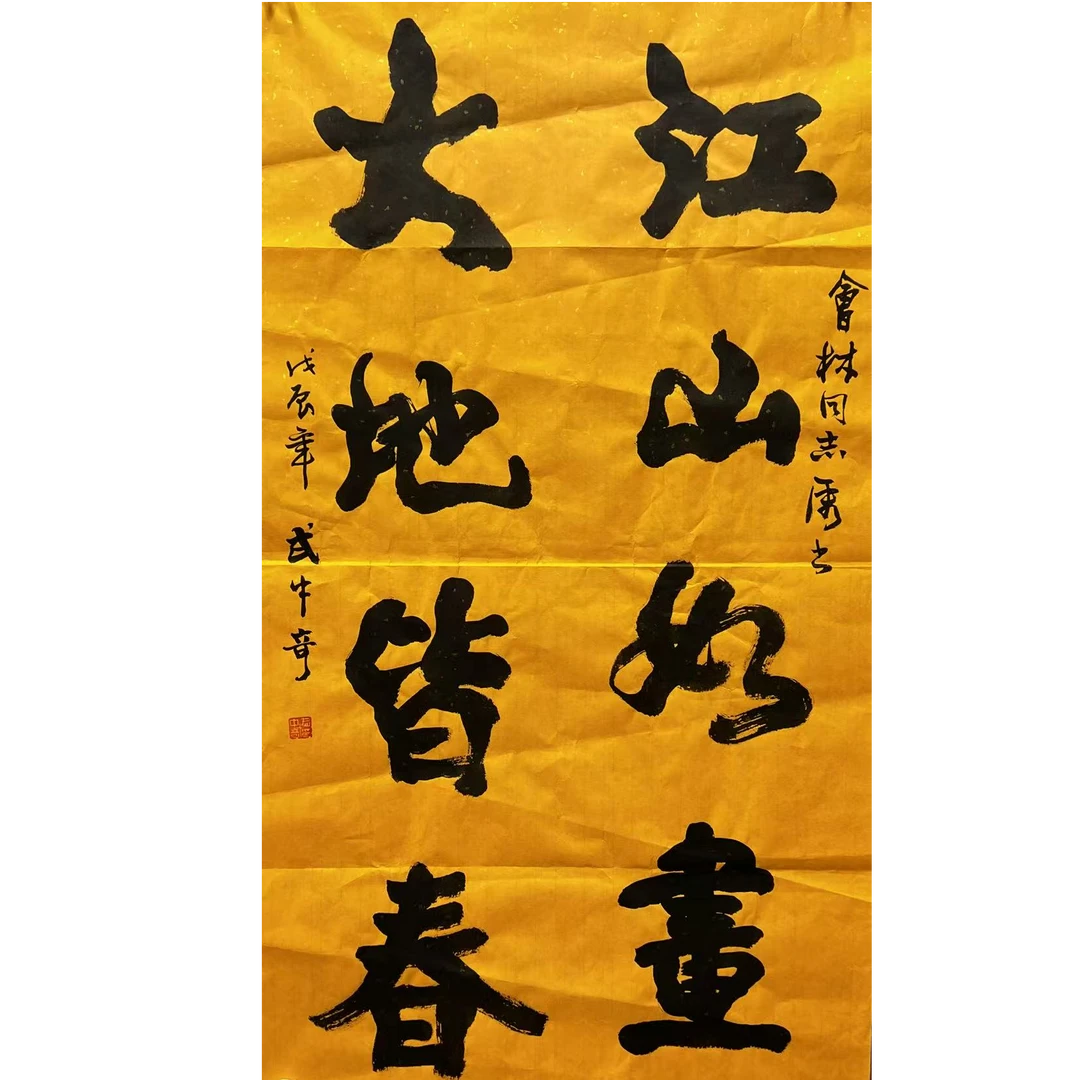 會林同志属书
江山如畫
大地皆春
戊辰年 武中奇